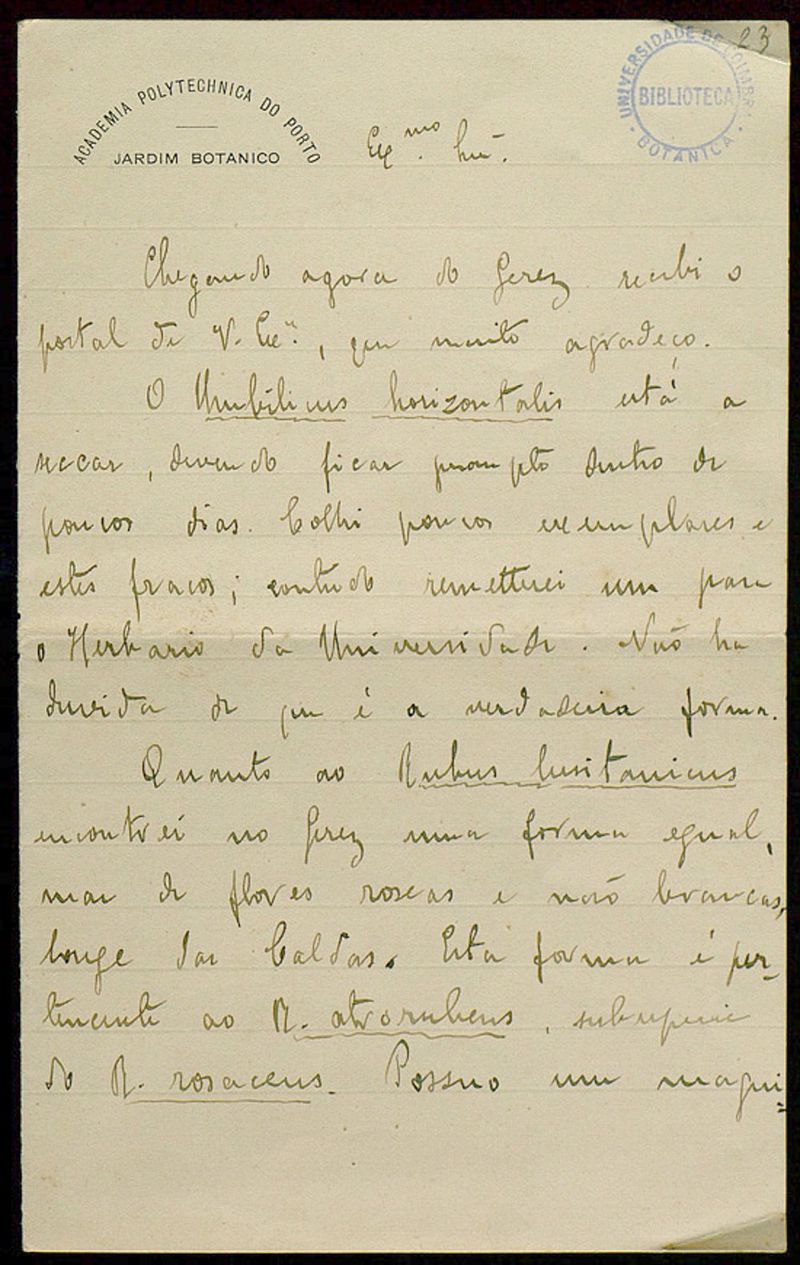 23
UNIVERSIDADE DE COIMBRA
BIBLIOTECA
BOTANICA
ACADEMIA POLYTECHNICA DO PORTO
JARDIM BOTANICO
Ex.mo Snr.
Chegando agora do Gerez recebi o
postal de V. Ex.a, que muito agradeço.
O Umbilicus horizontalis está a
seccar, devendo ficar prompto dentro de
poucos dias. Colhi poucos exemplares e
estes fracos; contudo remetterei um para
o Herbario da Universidade. Não ha
duvida de que é a verdadeira forma.
Quanto ao Rubus lusitanicus
encontrei no Gerez uma forma egual,
mas de flores roseas e não brancas,
longe das Caldas. Esta forma é per-
tencente ao R. atrorubens, subespecie
do R. rosaceus. Possuo um magni=